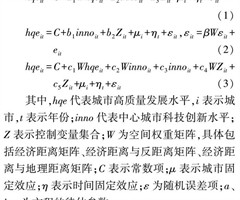 (1)
hqe_{it}=C+b_1inno_{it}+b_2Z_{it}+μ_i+η_t+ε_{it},ε_{it}=βWε_{it}+
e_{it} (2)
hqe_{it}=C+c_1Whqe_{it}+c_2Winno_{it}+c_3inno_{it}+c_4WZ_{it}+
c_5Z_{it}+μ_i+η_t+ε_{it} (3)
其中,hqe 代表城市高质量发展水平,i 表示城
市,t 表示年份;inno 代表中心城市科技创新水平;
Z 表示控制变量集合;W 为空间权重矩阵,具体包
括经济距离矩阵、经济距离与反距离矩阵、经济距
离与地理距离矩阵;C 表示常数项;μ 表示城市固
定效应;η 表示时间固定效应;ε 为随机误差项;a、